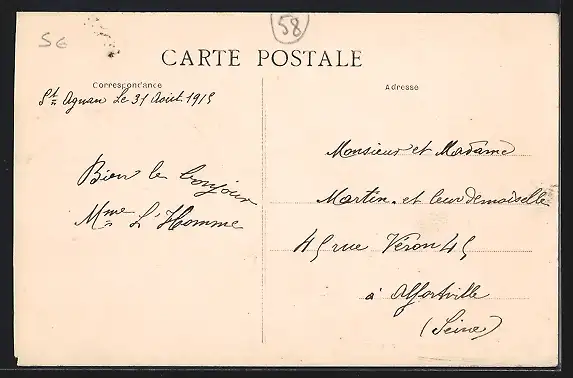 56
58
CARTE POSTALE
Correspondance
Adresse
St Agnan Le 31 Août 1915
Bien le bonjour
Mme L'Homme
Monsieur et Madame
Martin. et leur demoiselle
45 rue Véron 45
à Alfortville
(Seine)